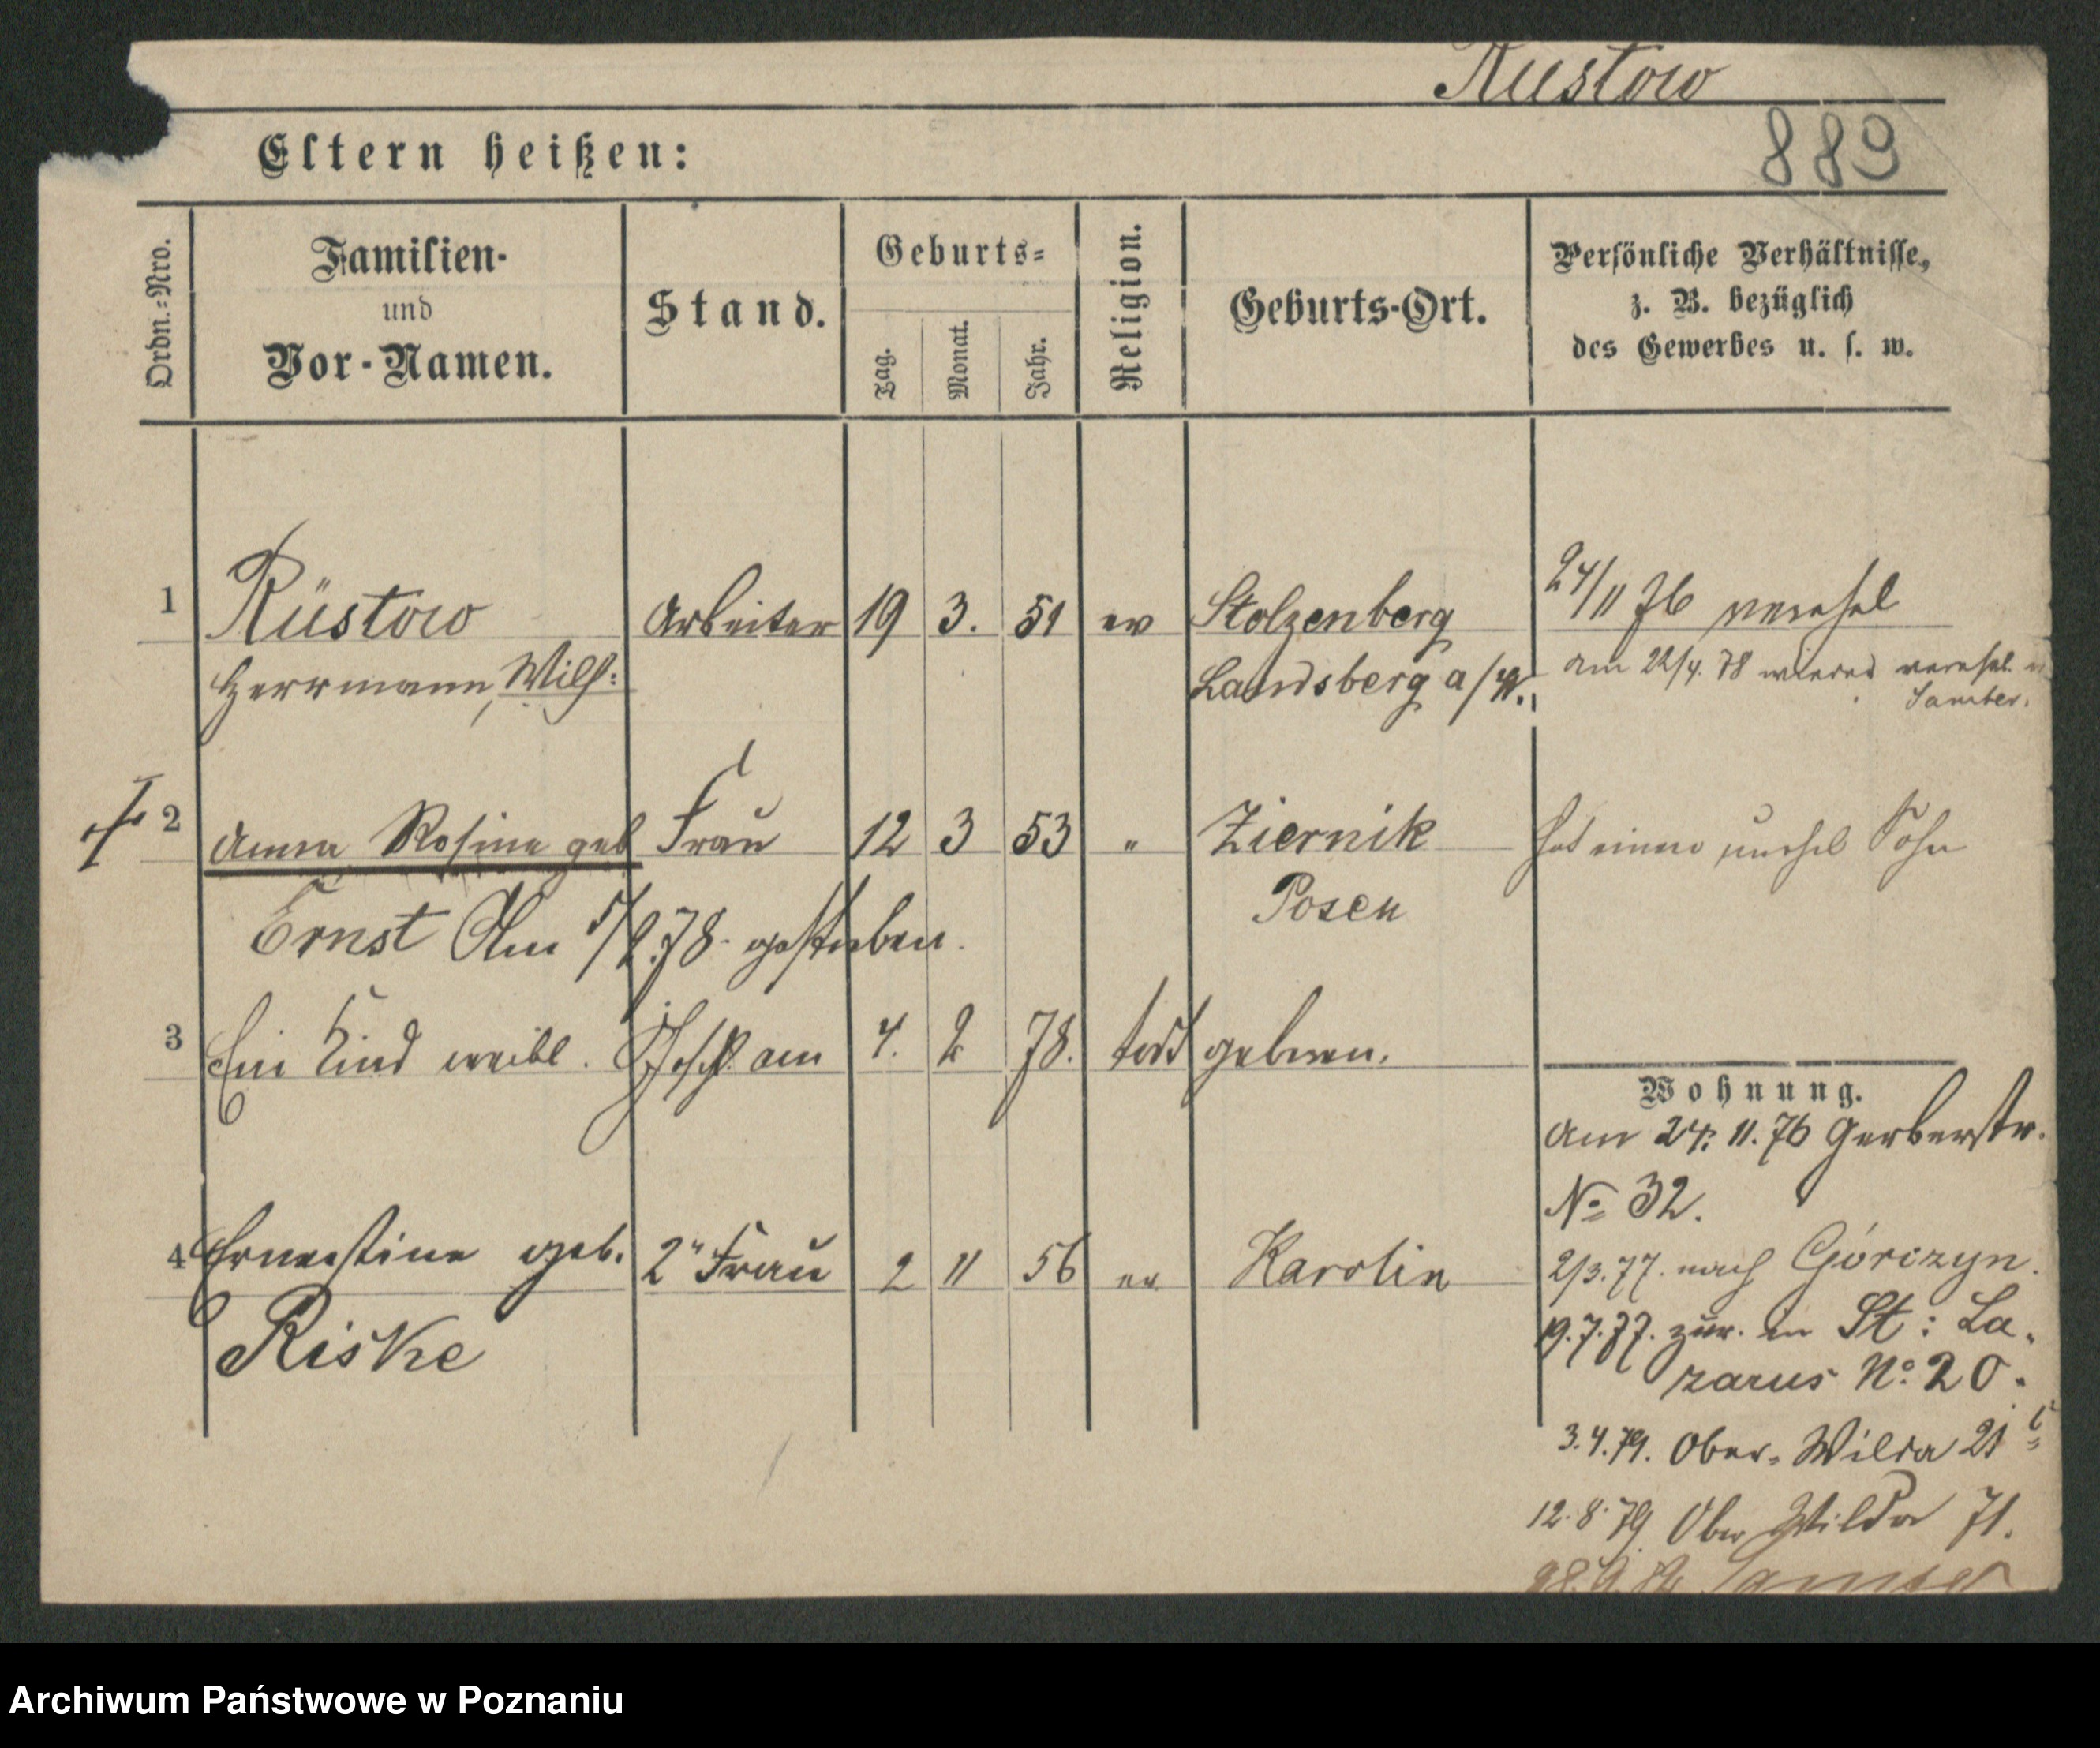 Rüstow
889
Eltern heißen:
Ordn.=Nro.
Familien-
und
Vor-Namen.
Stand.
Geburts=
Tag.
Monat.
Jahr.
Religion.
Geburts-Ort.
Persönliche Verhältnisse,
z. B. bezüglich
des Gewerbes u. s. w.
1 Rüstow Arbeiter 19 3. 51 ev Stolzenberg 24/11 76 verehel
Herrmann, Wilh: Landsberg a/W. am 22/4. 78 wieder verehel.
Samter.
2 Anna Rosine geb Frau 12 3 53 " Ziernik hat einen unehel Sohn
Ernst Am 5/2.78. gestorben. Posen
3 Ein Kind weibl. Geschl. am 4. 2 78. todt geboren.
4 Ernestine geb. 2" Frau 2 11 56 ev Karolin
Riske
Wohnung.
Am 24. 11. 76 Gerberstr.
No 32.
2/3.77. nach Górczyn.
19.7.77. zur. in St: La-
zarus No. 20.
3.4.79. Ober-Wilda 21
12.8.79 Ober Wilda 71.
Samter
Archiwum Państwowe w Poznaniu